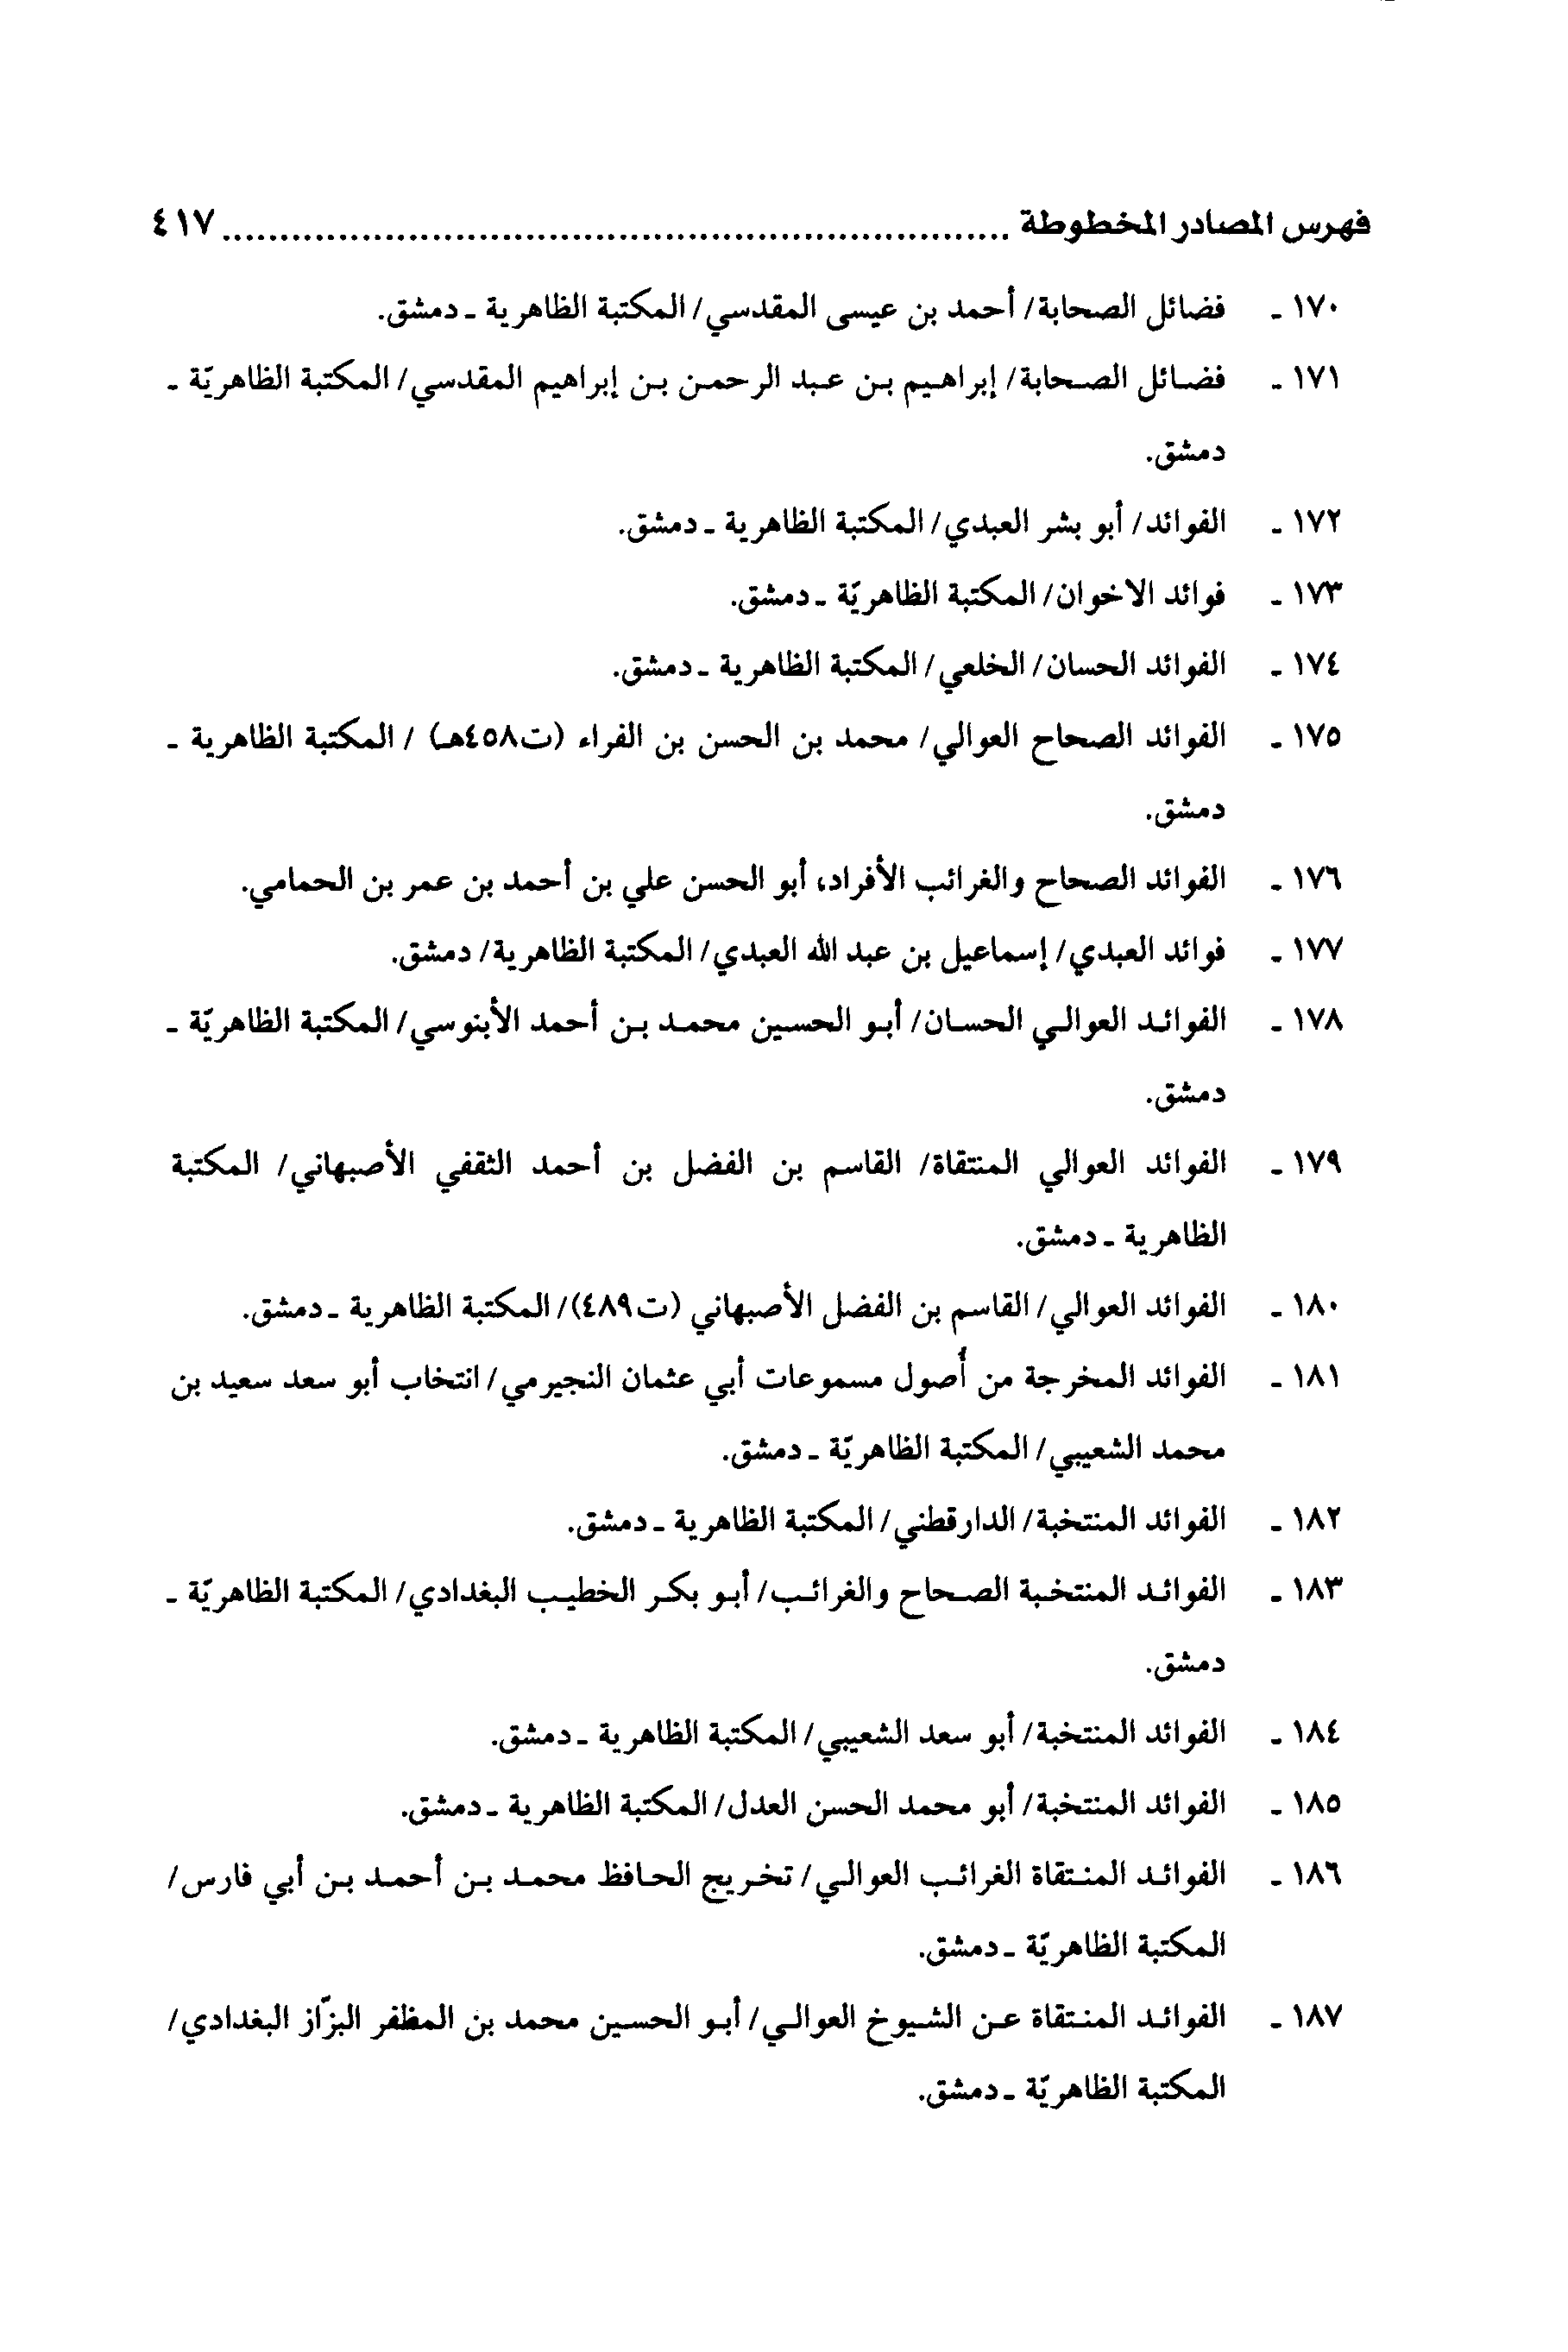 فهرس المصادر المخطوطة ................................................................... ٤١٧
١٧٠ ـ فضائل الصحابة/ أحمد بن عيسى المقدسي/ المكتبة الظاهرية ـ دمشق.
١٧١ ـ فضائل الصحابة/ إبراهيم بن عبد الرحمن بن إبراهيم المقدسي/ المكتبة الظاهريّة ـ
دمشق.
١٧٢ ـ الفوائد/ أبو بشر العبدي/ المكتبة الظاهرية ـ دمشق.
١٧٣ ـ فوائد الاخوان/ المكتبة الظاهريّة ـ دمشق.
١٧٤ ـ الفوائد الحسان/ الخلعي/ المكتبة الظاهرية ـ دمشق.
١٧٥ ـ الفوائد الصحاح العوالي/ محمد بن الحسن بن الفراء (ت٤٥٨هـ) / المكتبة الظاهرية ـ
دمشق.
١٧٦ ـ الفوائد الصحاح والغرائب الأفراد، أبو الحسن علي بن أحمد بن عمر بن الحمامي.
١٧٧ ـ فوائد العبدي/ إسماعيل بن عبد الله العبدي/ المكتبة الظاهرية/ دمشق.
١٧٨ ـ الفوائد العوالي الحسان/ أبو الحسين محمد بن أحمد الأبنوسي/ المكتبة الظاهريّة ـ
دمشق.
١٧٩ ـ الفوائد العوالي المنتقاة/ القاسم بن الفضل بن أحمد الثقفي الأصبهاني/ المكتبة
الظاهرية ـ دمشق.
١٨٠ ـ الفوائد العوالي/ القاسم بن الفضل الأصبهاني (ت٤٨٩)/ المكتبة الظاهرية ـ دمشق.
١٨١ ـ الفوائد المخرجة من أُصول مسموعات أبي عثمان النجيرمي/ انتخاب أبو سعد سعيد بن
محمد الشعيبي/ المكتبة الظاهريّة ـ دمشق.
١٨٢ ـ الفوائد المنتخبة/ الدارقطني/ المكتبة الظاهرية ـ دمشق.
١٨٣ ـ الفوائد المنتخبة الصحاح والغرائب/ أبو بكر الخطيب البغدادي/ المكتبة الظاهريّة ـ
دمشق.
١٨٤ ـ الفوائد المنتخبة/ أبو سعد الشعيبي/ المكتبة الظاهرية ـ دمشق.
١٨٥ ـ الفوائد المنتخبة/ أبو محمد الحسن العدل/ المكتبة الظاهرية ـ دمشق.
١٨٦ ـ الفوائد المنتقاة الغرائب العوالي/ تخريج الحافظ محمد بن أحمد بن أبي فارس/
المكتبة الظاهريّة ـ دمشق.
١٨٧ ـ الفوائد المنتقاة عن الشيوخ العوالي/ أبو الحسين محمد بن المظفر البزّاز البغدادي/
المكتبة الظاهريّة ـ دمشق.